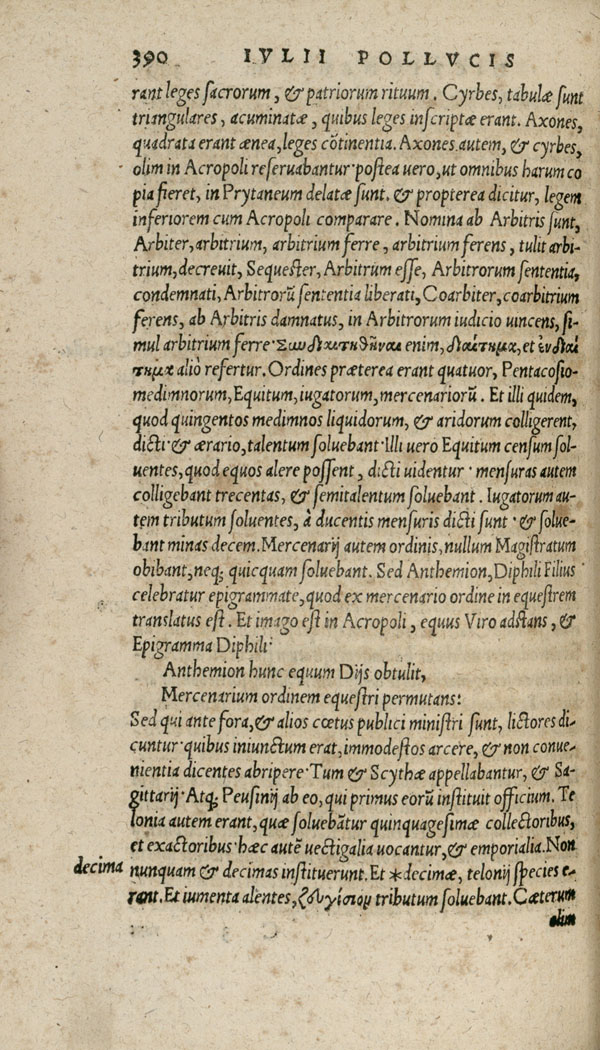 390 IVLII POLLVCIS
rant leges sacrorum, & patriorum rituum. Cyrbes, tabulæ sunt
triangulares, acuminatæ, quibus leges inscriptæ erant. Axones,
quadrata erant ænea, leges cōtinentia. Axones autem, & cyrbes,
olim in Acropoli reseruabantur· postea uero, ut omnibus harum co
pia fieret, in Prytaneum delatæ sunt. & propterea dicitur, legem
inferiorem cum Acropoli comparare. Nomina ab Arbitris sunt,
Arbiter, arbitrium, arbitrium ferre, arbitrium ferens, tulit arbi-
trium, decreuit, Sequester, Arbitrum esse, Arbitrorum sententia,
condemnati, Arbitrorū sententia liberati, Coarbiter, coarbitrium
ferens, ab Arbitris damnatus, in Arbitrorum iudicio uincens, si-
mul arbitrium ferre· Συνδιαιτηθῆναι enim, δίαιτημα, et ἐνδιαί
τημα aliò refertur. Ordines præterea erant quatuor, Pentacosio-
medimnorum, Equitum, iugatorum, mercenariorū. Et illi quidem,
quod quingentos medimnos liquidorum, & aridorum colligerent,
dicti· & ærario, talentum soluebant· Illi uero Equitum censum sol-
uentes, quod equos alere possent, dicti uidentur· mensuras autem
colligebant trecentas, & semitalentum soluebant. Iugatorum au-
tem tributum soluentes, à ducentis mensuris dicti sunt· & solue-
bant minas decem. Mercenarij autem ordinis, nullum Magistratum
obibant, neq; quicquam soluebant. Sed Anthemion, Diphili Filius
celebratur epigrammate, quod ex mercenario ordine in equestrem
translatus est. Et imago est in Acropoli, equus Viro adstans, &
Epigramma Diphili·
Anthemion hunc equum Dijs obtulit,
Mercenarium ordinem equestri permutans:
Sed qui ante fora, & alios cœtus publici ministri sunt, lictores di-
cuntur· quibus iniunctum erat, immodestos arcere, & non conue-
nientia dicentes abripere· Tum & Scythæ appellabantur, & Sa-
gittarij· Atq; Peusinij ab eo, qui primus eorū instituit officium. Te
lonia autem erant, quæ soluebātur quinquagesimæ collectoribus,
et exactoribus· hæc autē uectigalia uocantur, & emporialia. Non
decima nunquam & decimas instituerunt. Et *decimæ, telonij species e-
rant. Et iumenta alentes, ζδυγίσιομ tributum soluebant. Cæterum
olim